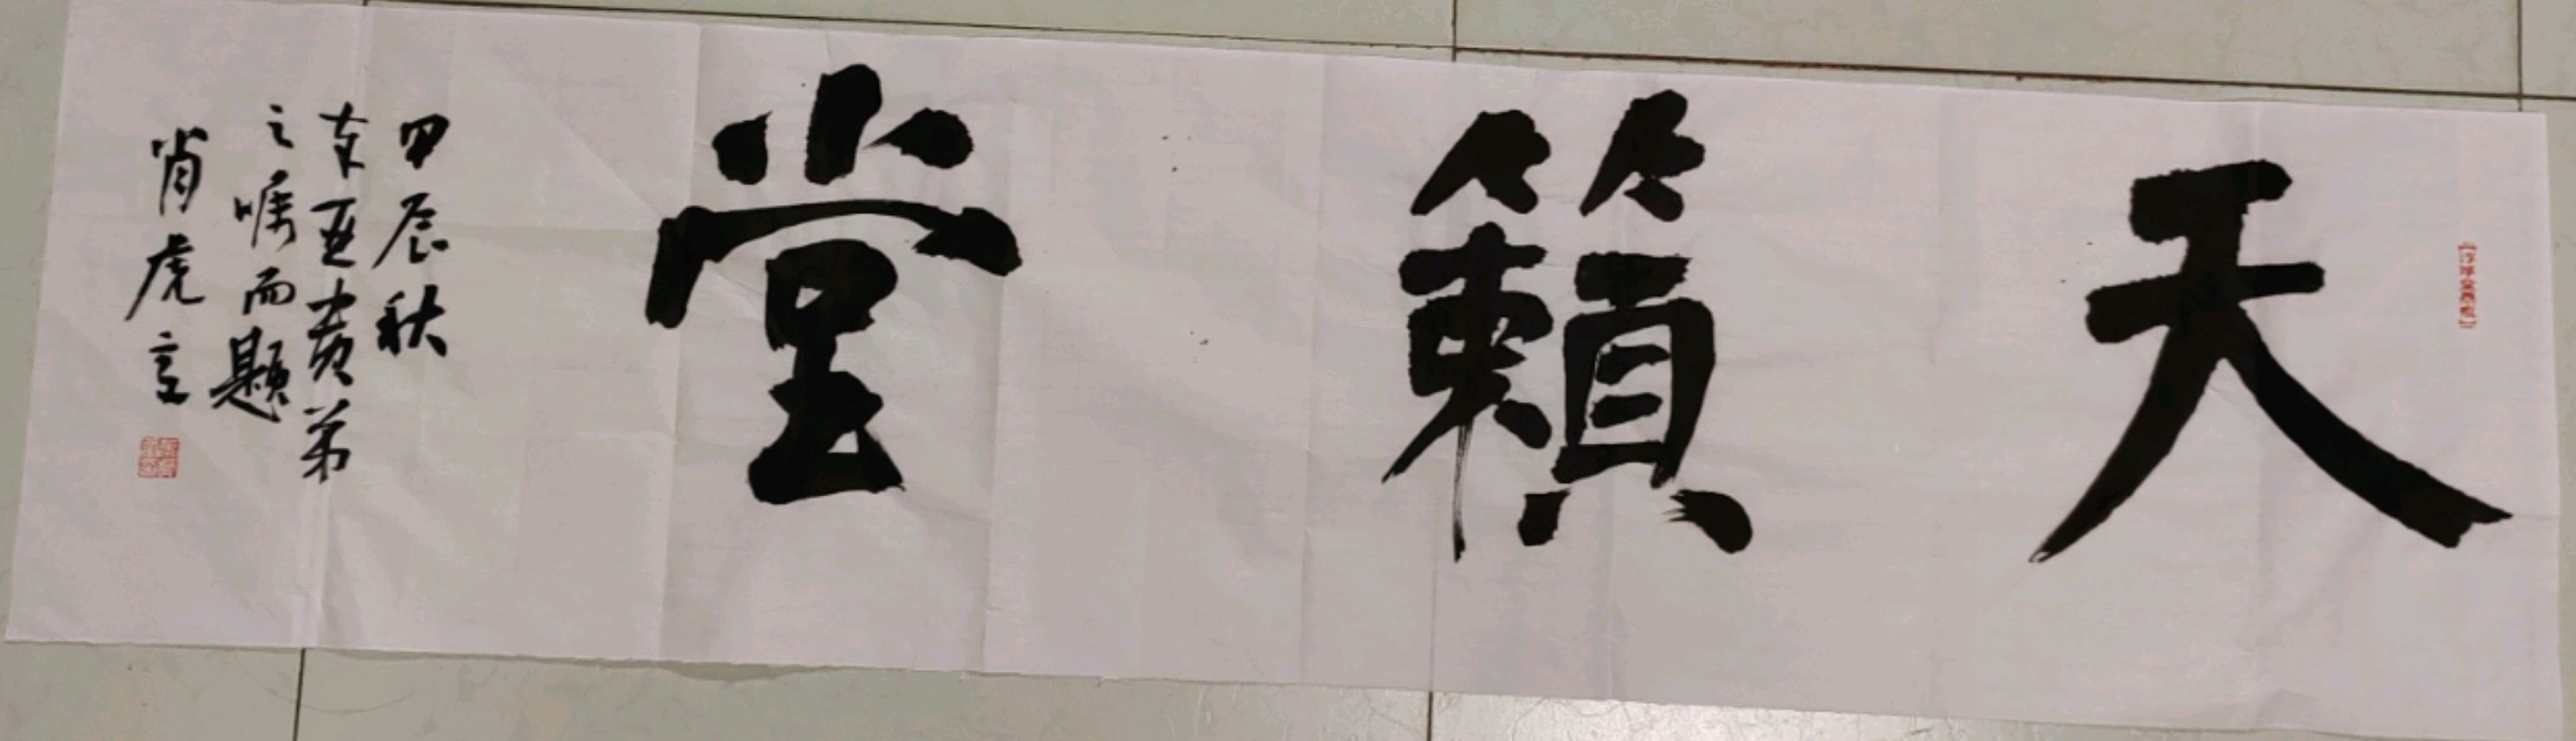 天籟堂
甲辰秋
東亚賢弟
之嘱而题
肖虎言